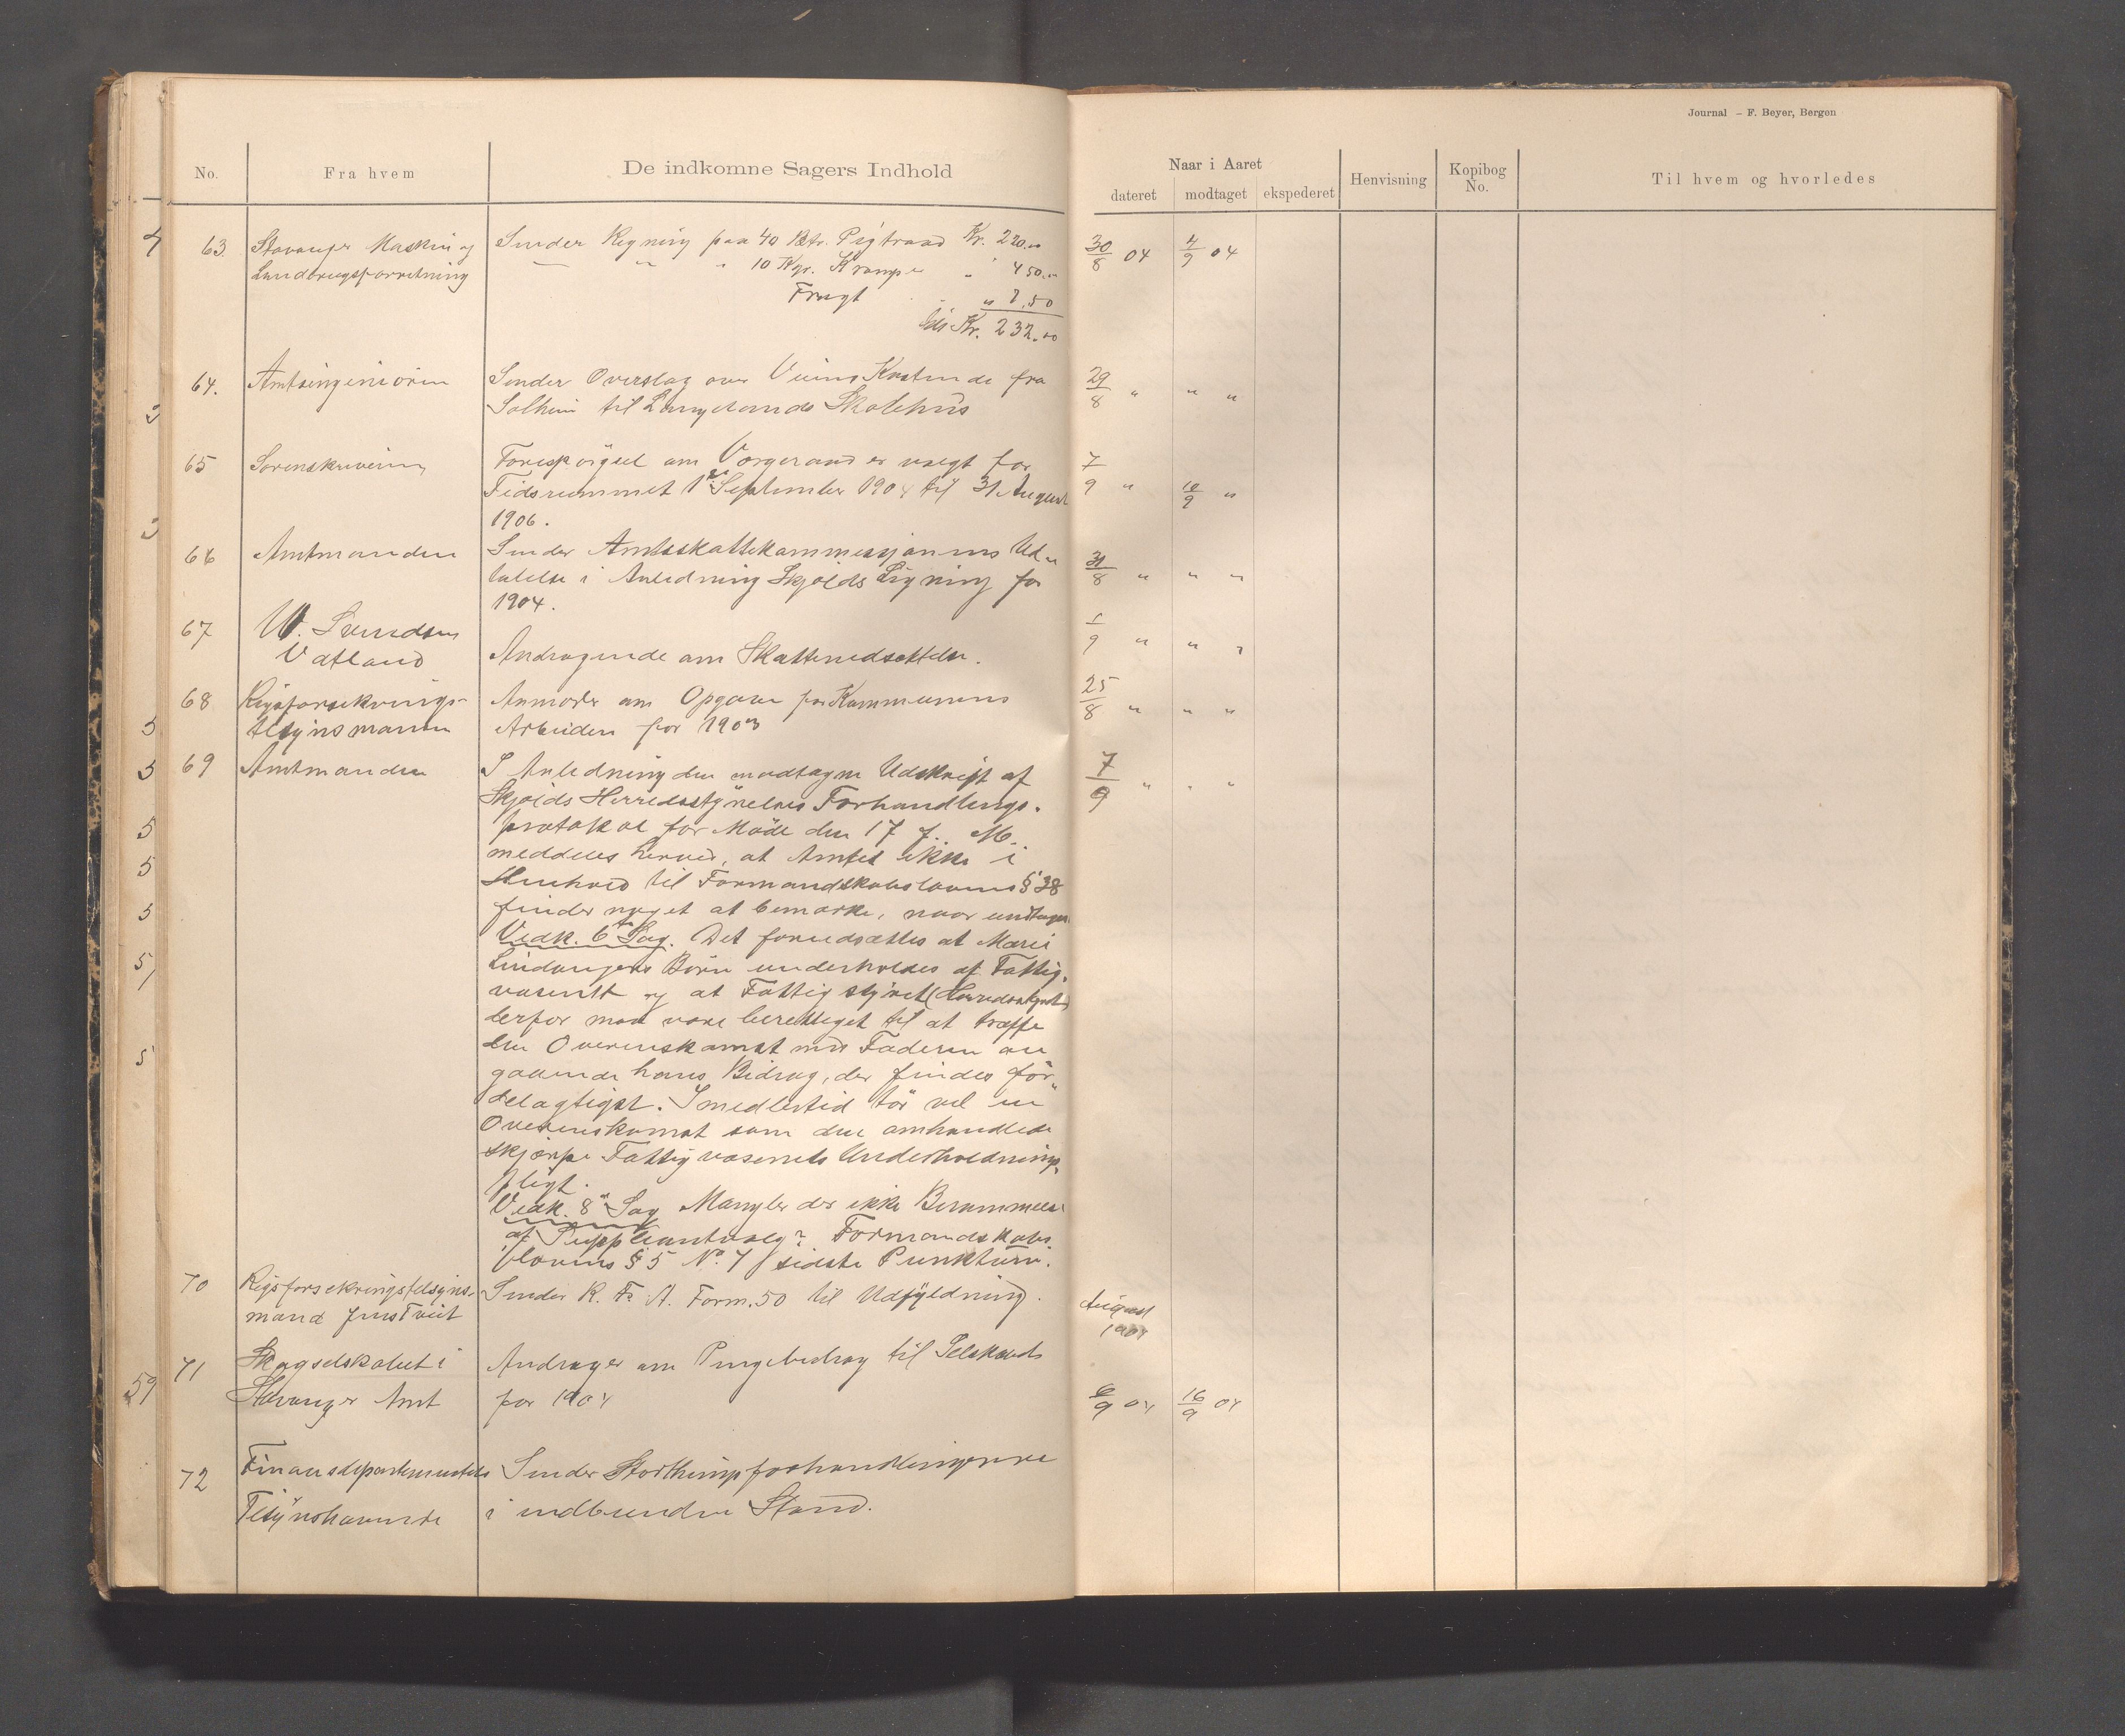 Journal – F. Beyer, Bergen
No. Fra hvem De indkomne Sagers Indhold Naar i Aaret dateret modtaget ekspederet Henvisning Kopibog No. Til hvem og hvorledes
63. Stavanger Maskin og Sender Regning paa 40 Pigtraad Kr. 220.00 30/8 04 4/9 04
Landbrugsforretning " " 10 Kgr. Krampe " 450.00
Fragt " 7,50
Kr. 232.00
64. Amtsingeniøren Sender Overslag over Veiens Kostende fra 29/8 " " "
Solheim til Langelands Skolehus
65 Sorenskriveren Forespørgsel om Værgeraad er valgt for 7/9 " 10/9 "
Tidsrummet 1ste September 1904 til 31 August
1906.
66 Amtmanden Sender Amtsskattekommissjonens Ud- 31/8 " " "
talelse i Anledning Skjolds Ligning for
1904.
67 W. Svendsen
Vatland Andragende om Skattenedsættelse. 1/9 " " "
68 Rigsforsekrings- Anmoder om Opgave for Kommunens 25/8 " " "
tilsynsmanden Arbeiden for 1903
69 Amtmanden I Anledning den modtagne Udskrift af 7/9 " " "
Skjolds Herredsstyrelses Forhandlings-
protokol for Møde den 17 f. M.
meddeles herved, at Amtet ikke i
Henhold til Formandskabslovens § 38
finder noget at bemærke, naar undtages
Vedk. 6te Sag. Det forudsættes at Marie
Lindangers Børn underholdes af Fattig-
væsenet og at Fattigstyret (Herredsstyret)
derfor maa være berettiget til at træffe
den Overenskomst med Faderen an
gaaende hans Bidrag, der findes for-
delagtigst. Imedlertid tør vel en
Overenskomst som den omhandlede
skjærpe Fattigvæsenets Underholdnings-
pligt.
Vedk. 8de Sag Mangler der ikke Berammelse
af Suppleantvalg? Formandskabs
lovens § 5 No. 7 sidste Punktum.
70 Rigsforsekringstilsyns- Sender R. F. A. Form. 50 til Udfyldning. August
mand Jens Tveit 1904
71 Skogselskabet i Andrager om Pengebidrag til Selskabet
Stavanger Amt for 1904 6/9 04 16/9 04
72 Finansdepartementets Sender Storthingsforhandlingerne
Tilsynshavende i indbunden Stand.